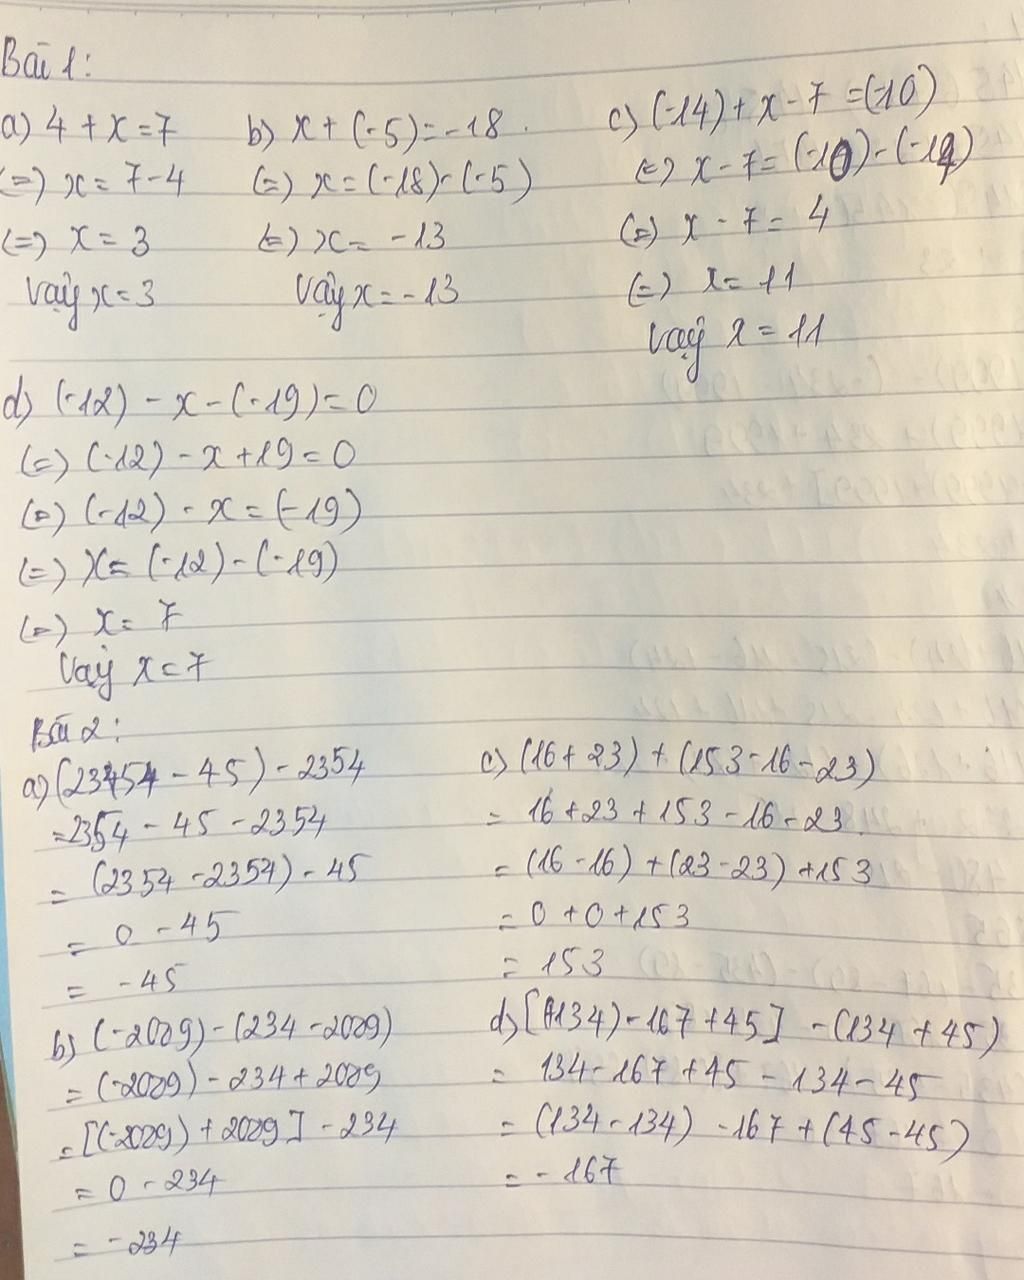 Bài 1:
a) 4 + x = 7
(=) x = 7 - 4
(=) x = 3
Vậy x = 3
b) x + (-5) = -18.
(=) x = (-18) - (-5)
(=) x = -13
Vậy x = -13
c) (-14) + x - 7 = (-10)
(=) x - 7 = (-10) - (-14)
(=) x - 7 = 4
(=) x = 11
Vậy x = 11
d) (-12) - x - (-19) = 0
(=) (-12) - x + 19 = 0
(=) (-12) - x = (-19)
(=) x = (-12) - (-19)
(=) x = 7
Vậy x = 7
Bài 2:
a) (2354 - 45) - 2354
= 2354 - 45 - 2354
= (2354 - 2354) - 45
= 0 - 45
= -45
b) (-2009) - (234 - 2009)
= (-2009) - 234 + 2009
= [(-2009) + 2009] - 234
= 0 - 234
= -234
c) (16 + 23) + (153 - 16 - 23)
= 16 + 23 + 153 - 16 - 23
= (16 - 16) + (23 - 23) + 153
= 0 + 0 + 153
= 153
d) [(134) - 167 + 45] - (134 + 45)
= 134 - 167 + 45 - 134 - 45
= (134 - 134) - 167 + (45 - 45)
= - 167